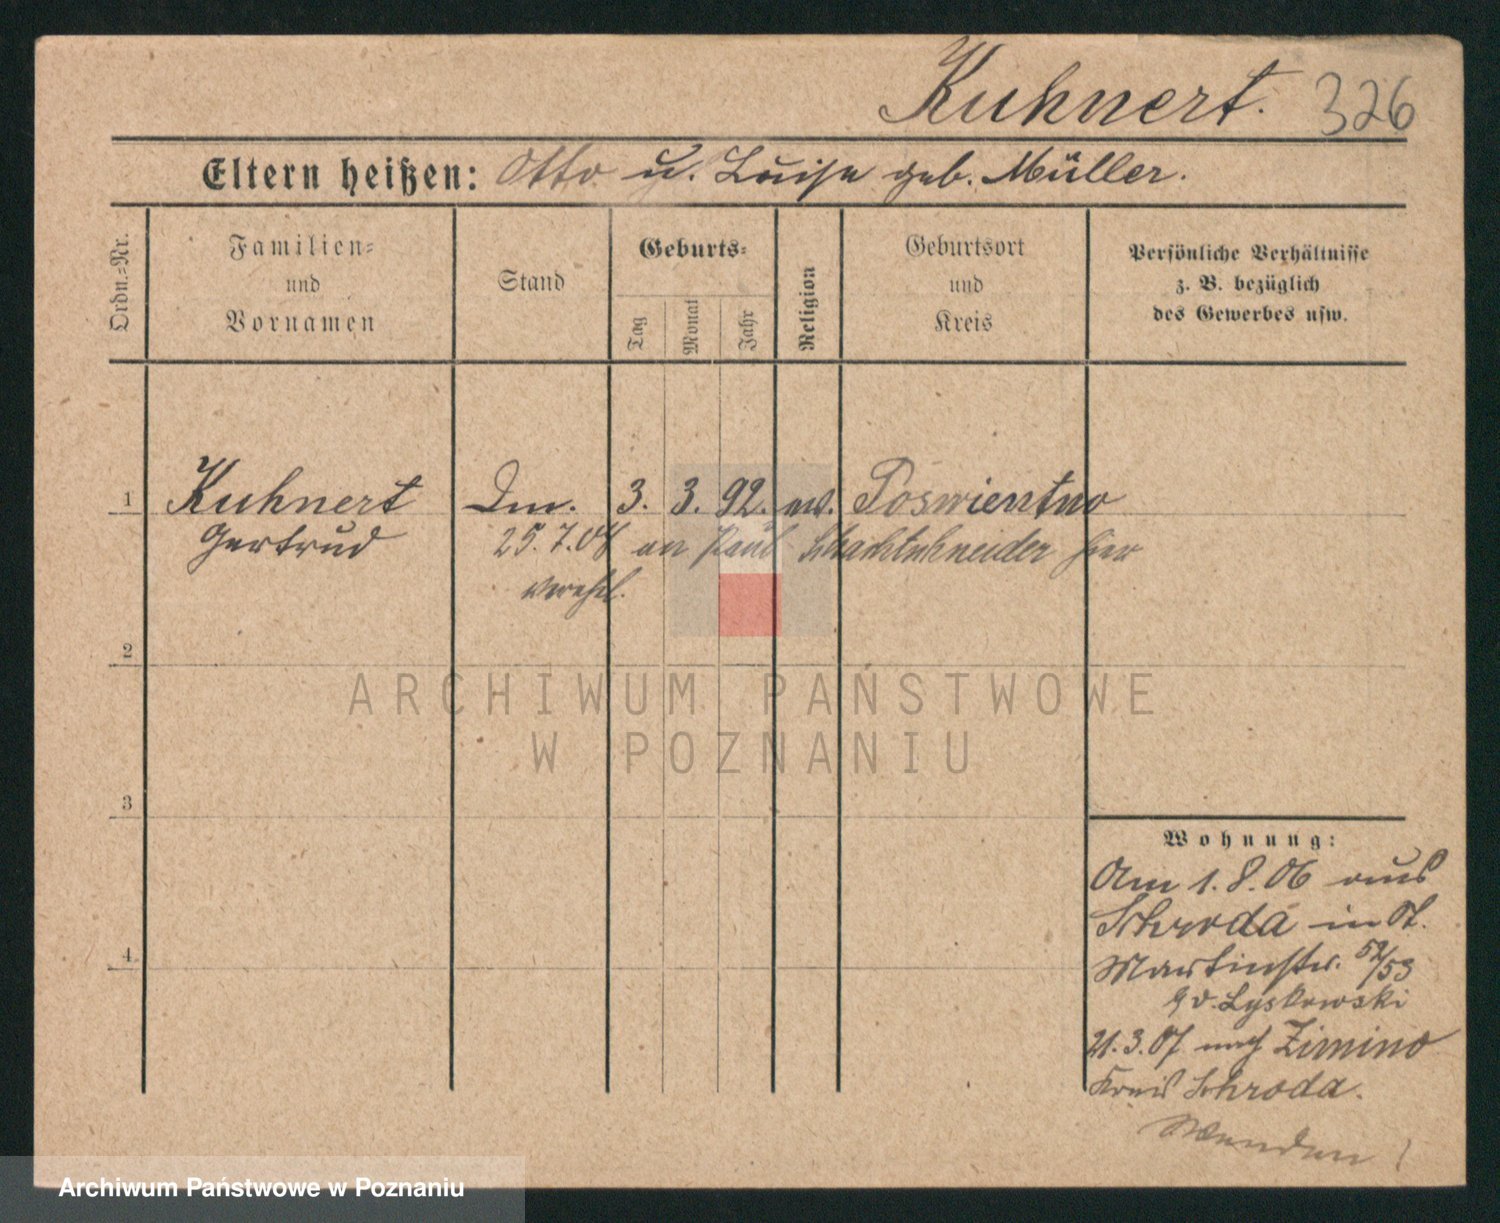 Kuhnert. 326
Eltern heißen: Otto u. Luise geb. Müller.
Ordn.=Nr.
Familien=
und
Vornamen
Stand
Geburts=
Tag
Monat
Jahr
Religion
Geburtsort
und
Kreis
Persönliche Verhältnisse
z. B. bezüglich
des Gewerbes usw.
1 Kuhnert 3. 3. 92. ev. Poswientno
Gertrud 25. 7. 08 an Paul Schachtschneider hier
verehel.
2
ARCHIWUM PAŃSTWOWE
W POZNANIU
3
Wohnung:
Am 1. 8. 06 aus
Schroda in St.
4
Martinstr. 52/53
v. Lyskowski
21. 3. 07 nach Zimino
Kreis Schroda.
Wenden!
Archiwum Państwowe w Poznaniu